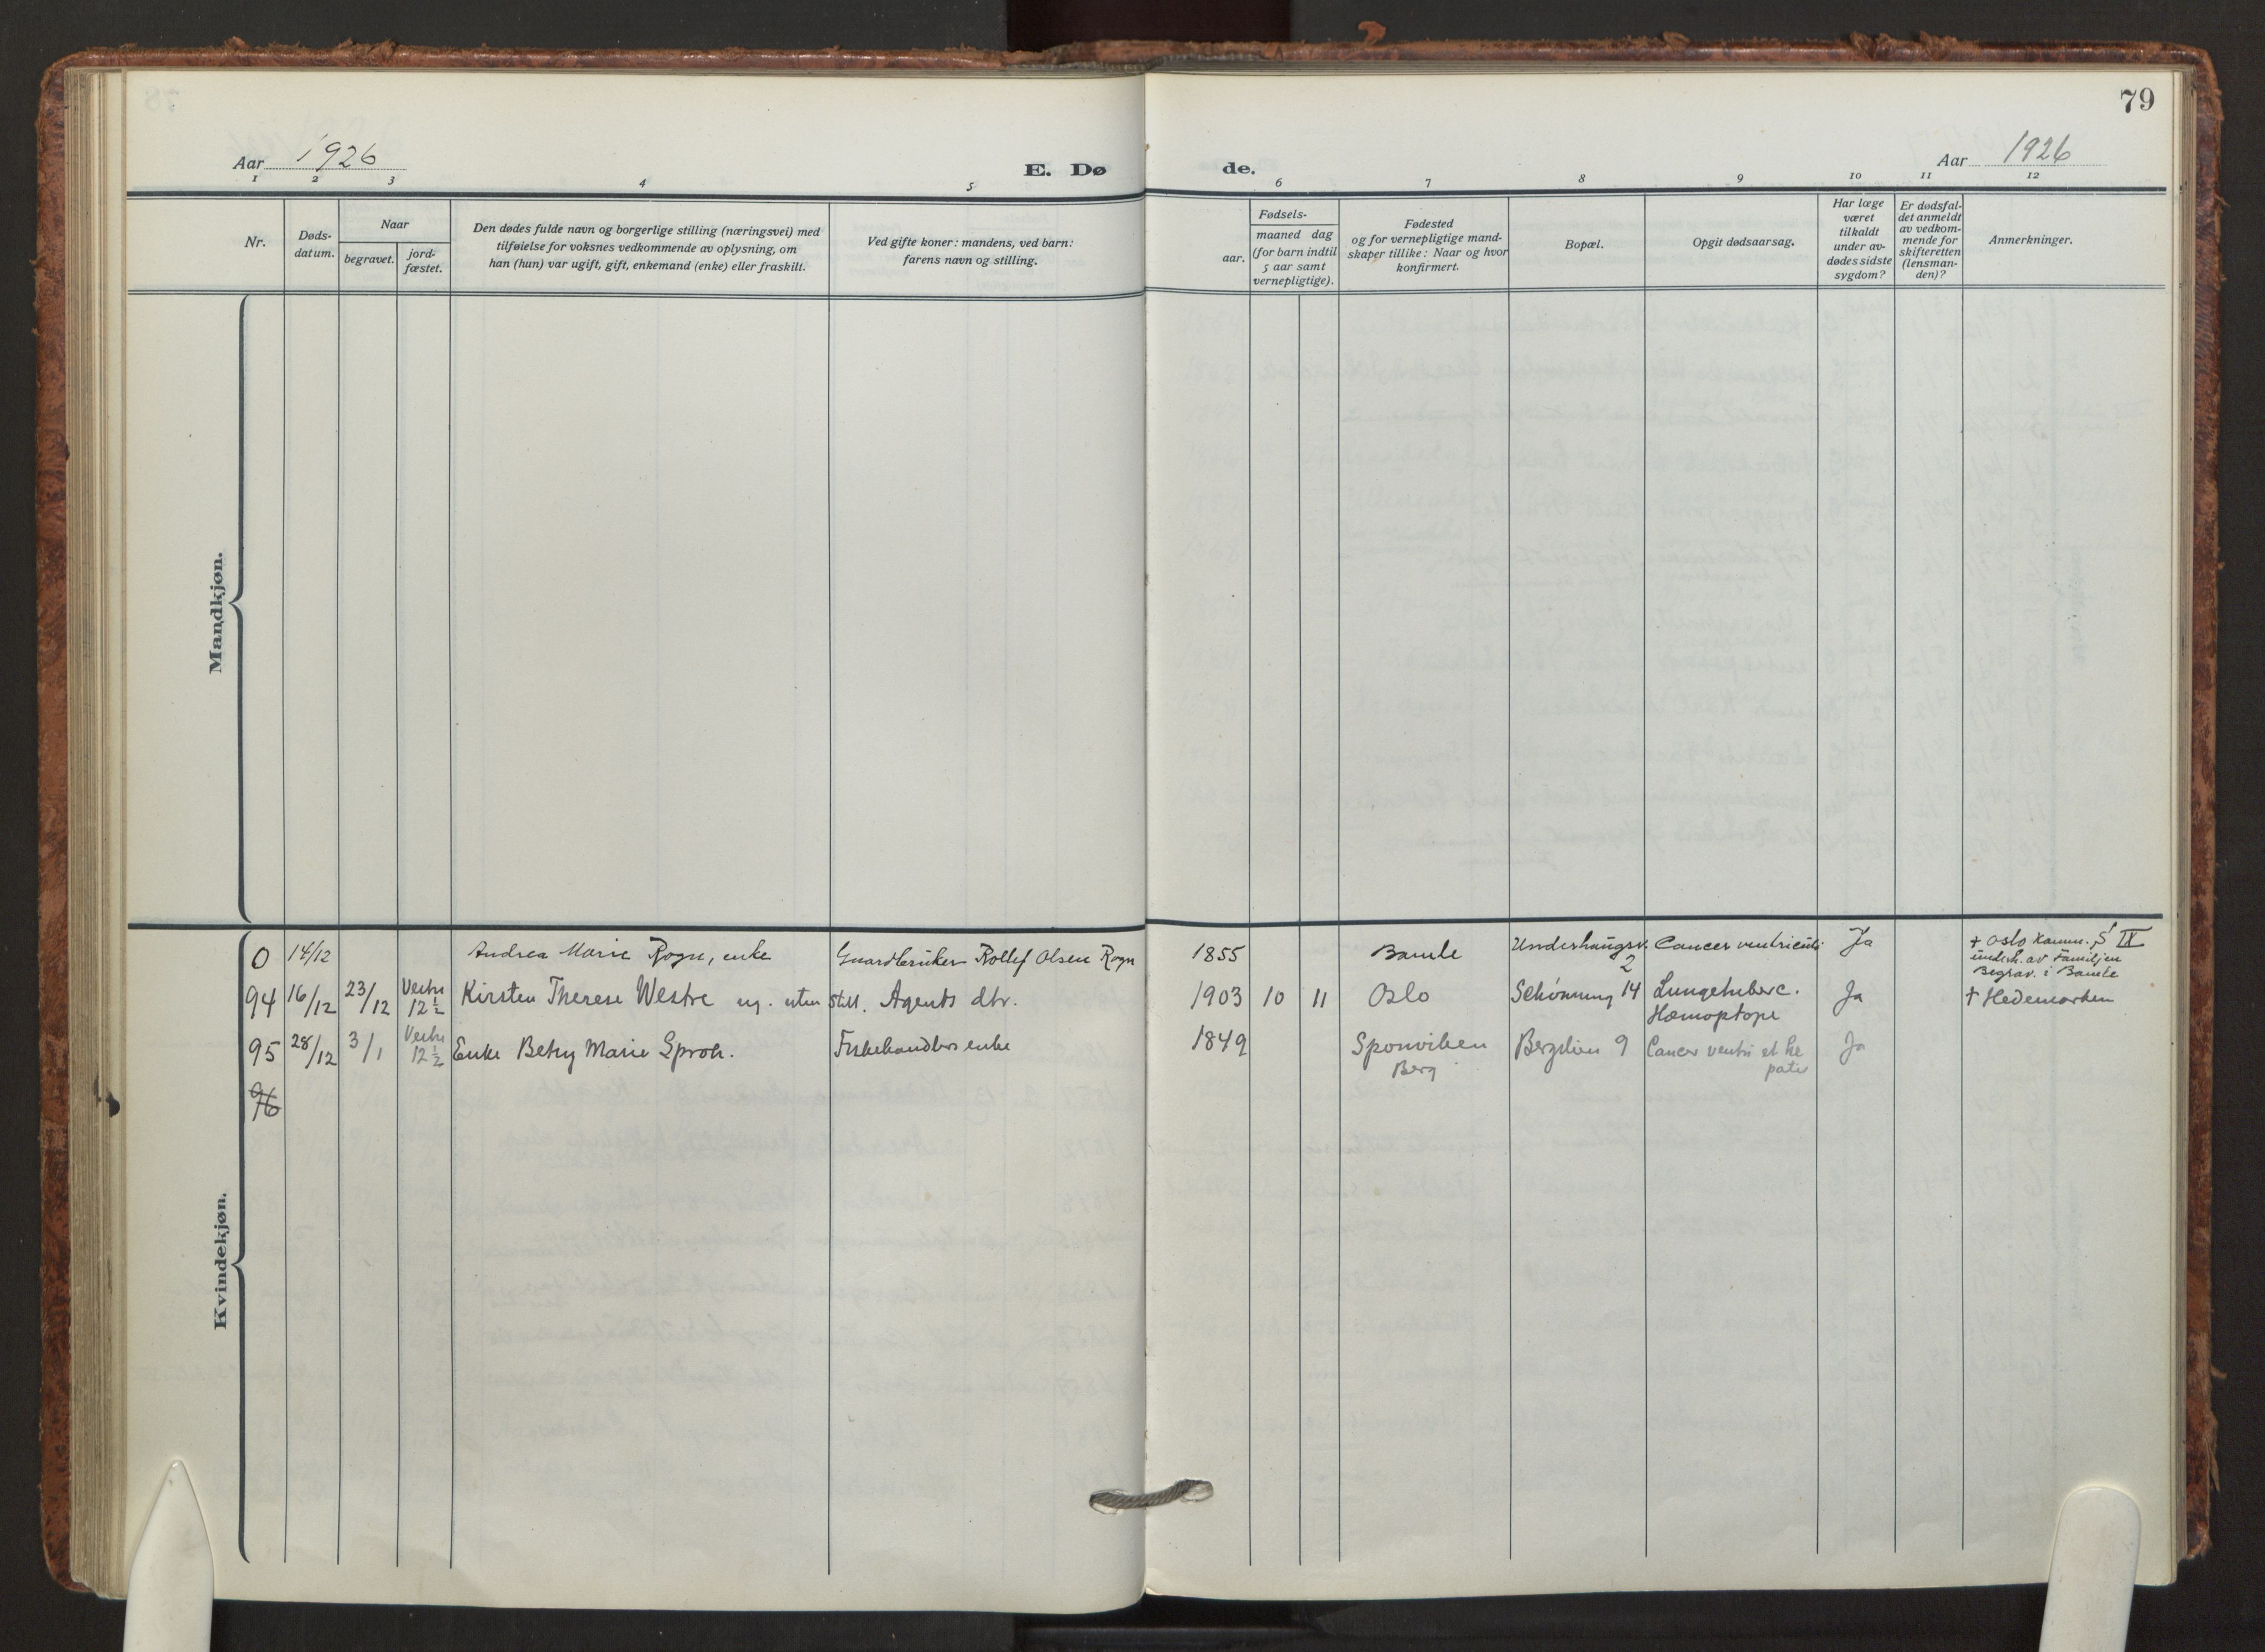 79
Aar 1926
E. Dø
de.
Aar 1926
1 2 3 4 5 6 7 8 9 10 11 12
Nr.
Døds-
datum.
Naar
begravet.
jord-
fæstet.
Den dødes fulde navn og borgerlige stilling (næringsvei) med
tilføielse for voksnes vedkommende av oplysning, om
han (hun) var ugift, gift, enkemand (enke) eller fraskilt.
Ved gifte koner: mandens, ved barn:
farens navn og stilling.
Fødsels-
aar.
maaned dag
(for barn indtil
5 aar samt
vernepligtige).
Fødested
og for vernepligtige mand-
skaper tillike: Naar og hvor
konfirmert.
Bopæl.
Opgit dødsaarsag.
Har læge
været
tilkaldt
under av-
dødes sidste
sygdom?
Er dødsfal-
det anmeldt
av vedkom-
mende for
skifteretten
(lensman-
den)?
Anmerkninger.
Mandkjøn.
Kvindekjøn.
0 14/12 Andrea Marie Rogn, enke Gaardbruker Rollef Olsen Rogn 1855 Bamle Underhaugsv. 2 Cancer ventriculi Ja † Oslo Komm. S IX
underh. av Familjen
Begrav. i Bamle
94 16/12 23/12 Vestre 12 1/2 Kirsten Therese Westre ug. uten still. Agents dtr. 1903 10 11 Oslo Schønning 14 Lungetuberc. Ja † Hedemarken
Hæmoptope
95 28/12 3/1 Vestre 12 1/2 Enke Betzy Marie Sproh. enke 1849 Sponviken Berglien 9 Cancer ventri et he Ja
Berg patis
96